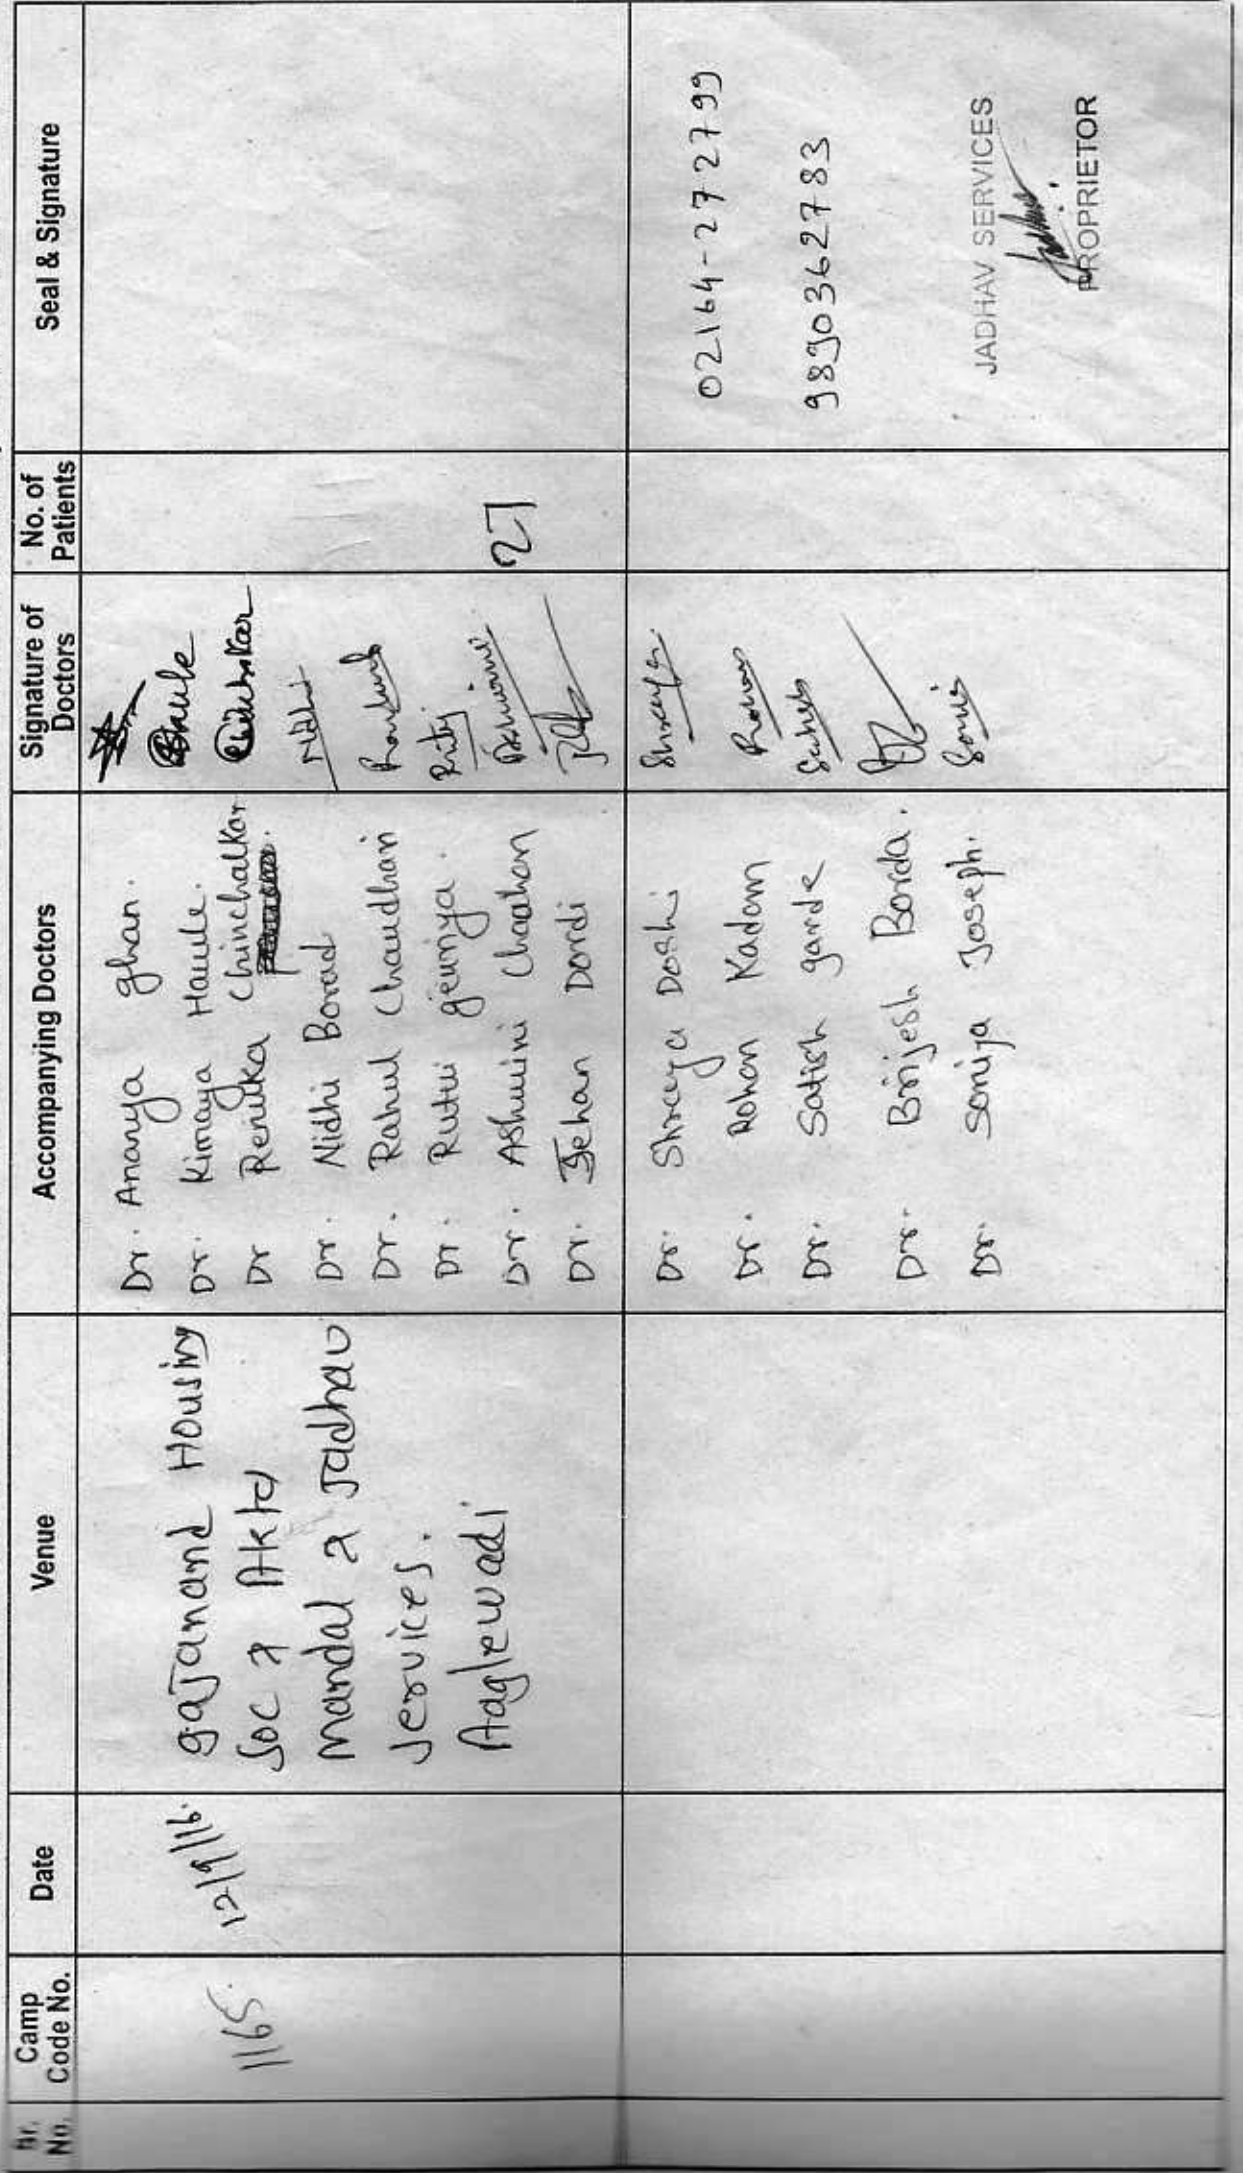 Sr. No.
Camp Code No.
Date
Venue
Accompanying Doctors
Signature of Doctors
No. of Patients
Seal & Signature
1165.
12/9/16.
gajanand Housing
Soc & Akta
mandal & Jadhav
services.
Aaglewadi
Dr. Ananya Ghan.
Dr. Kimaya Haule.
Dr Renuka Chinchalkar
Dr. Nidhi Borad
Dr. Rahul Chaudhari
Dr. Rutvi
Dr. Ashwini Chauhan
Dr. Jehan Dordi
Nidhi
Ashwini
27
Dr. Shreya Doshi
Dr. Rohan Kadam
Dr. Satish garde
Dr. Brijesh Borda.
Dr. Soniya Joseph.
Shreya
Rohan
Satish
Soniya
02164-272799
9830362783
JADHAV SERVICES
PROPRIETOR